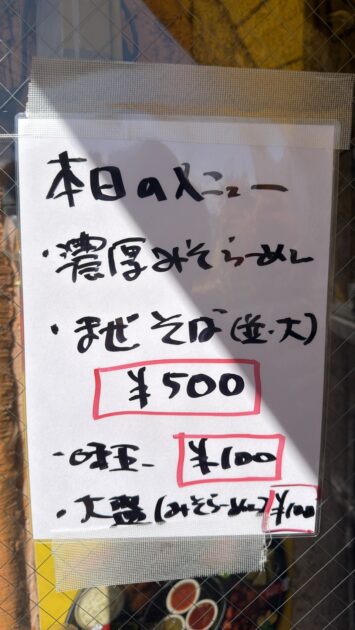 本日のメニュー
・濃厚みそらーめん
・まぜそば(並・大)
¥500
・味玉 ¥100
・大盛(みそらーめん) ¥100